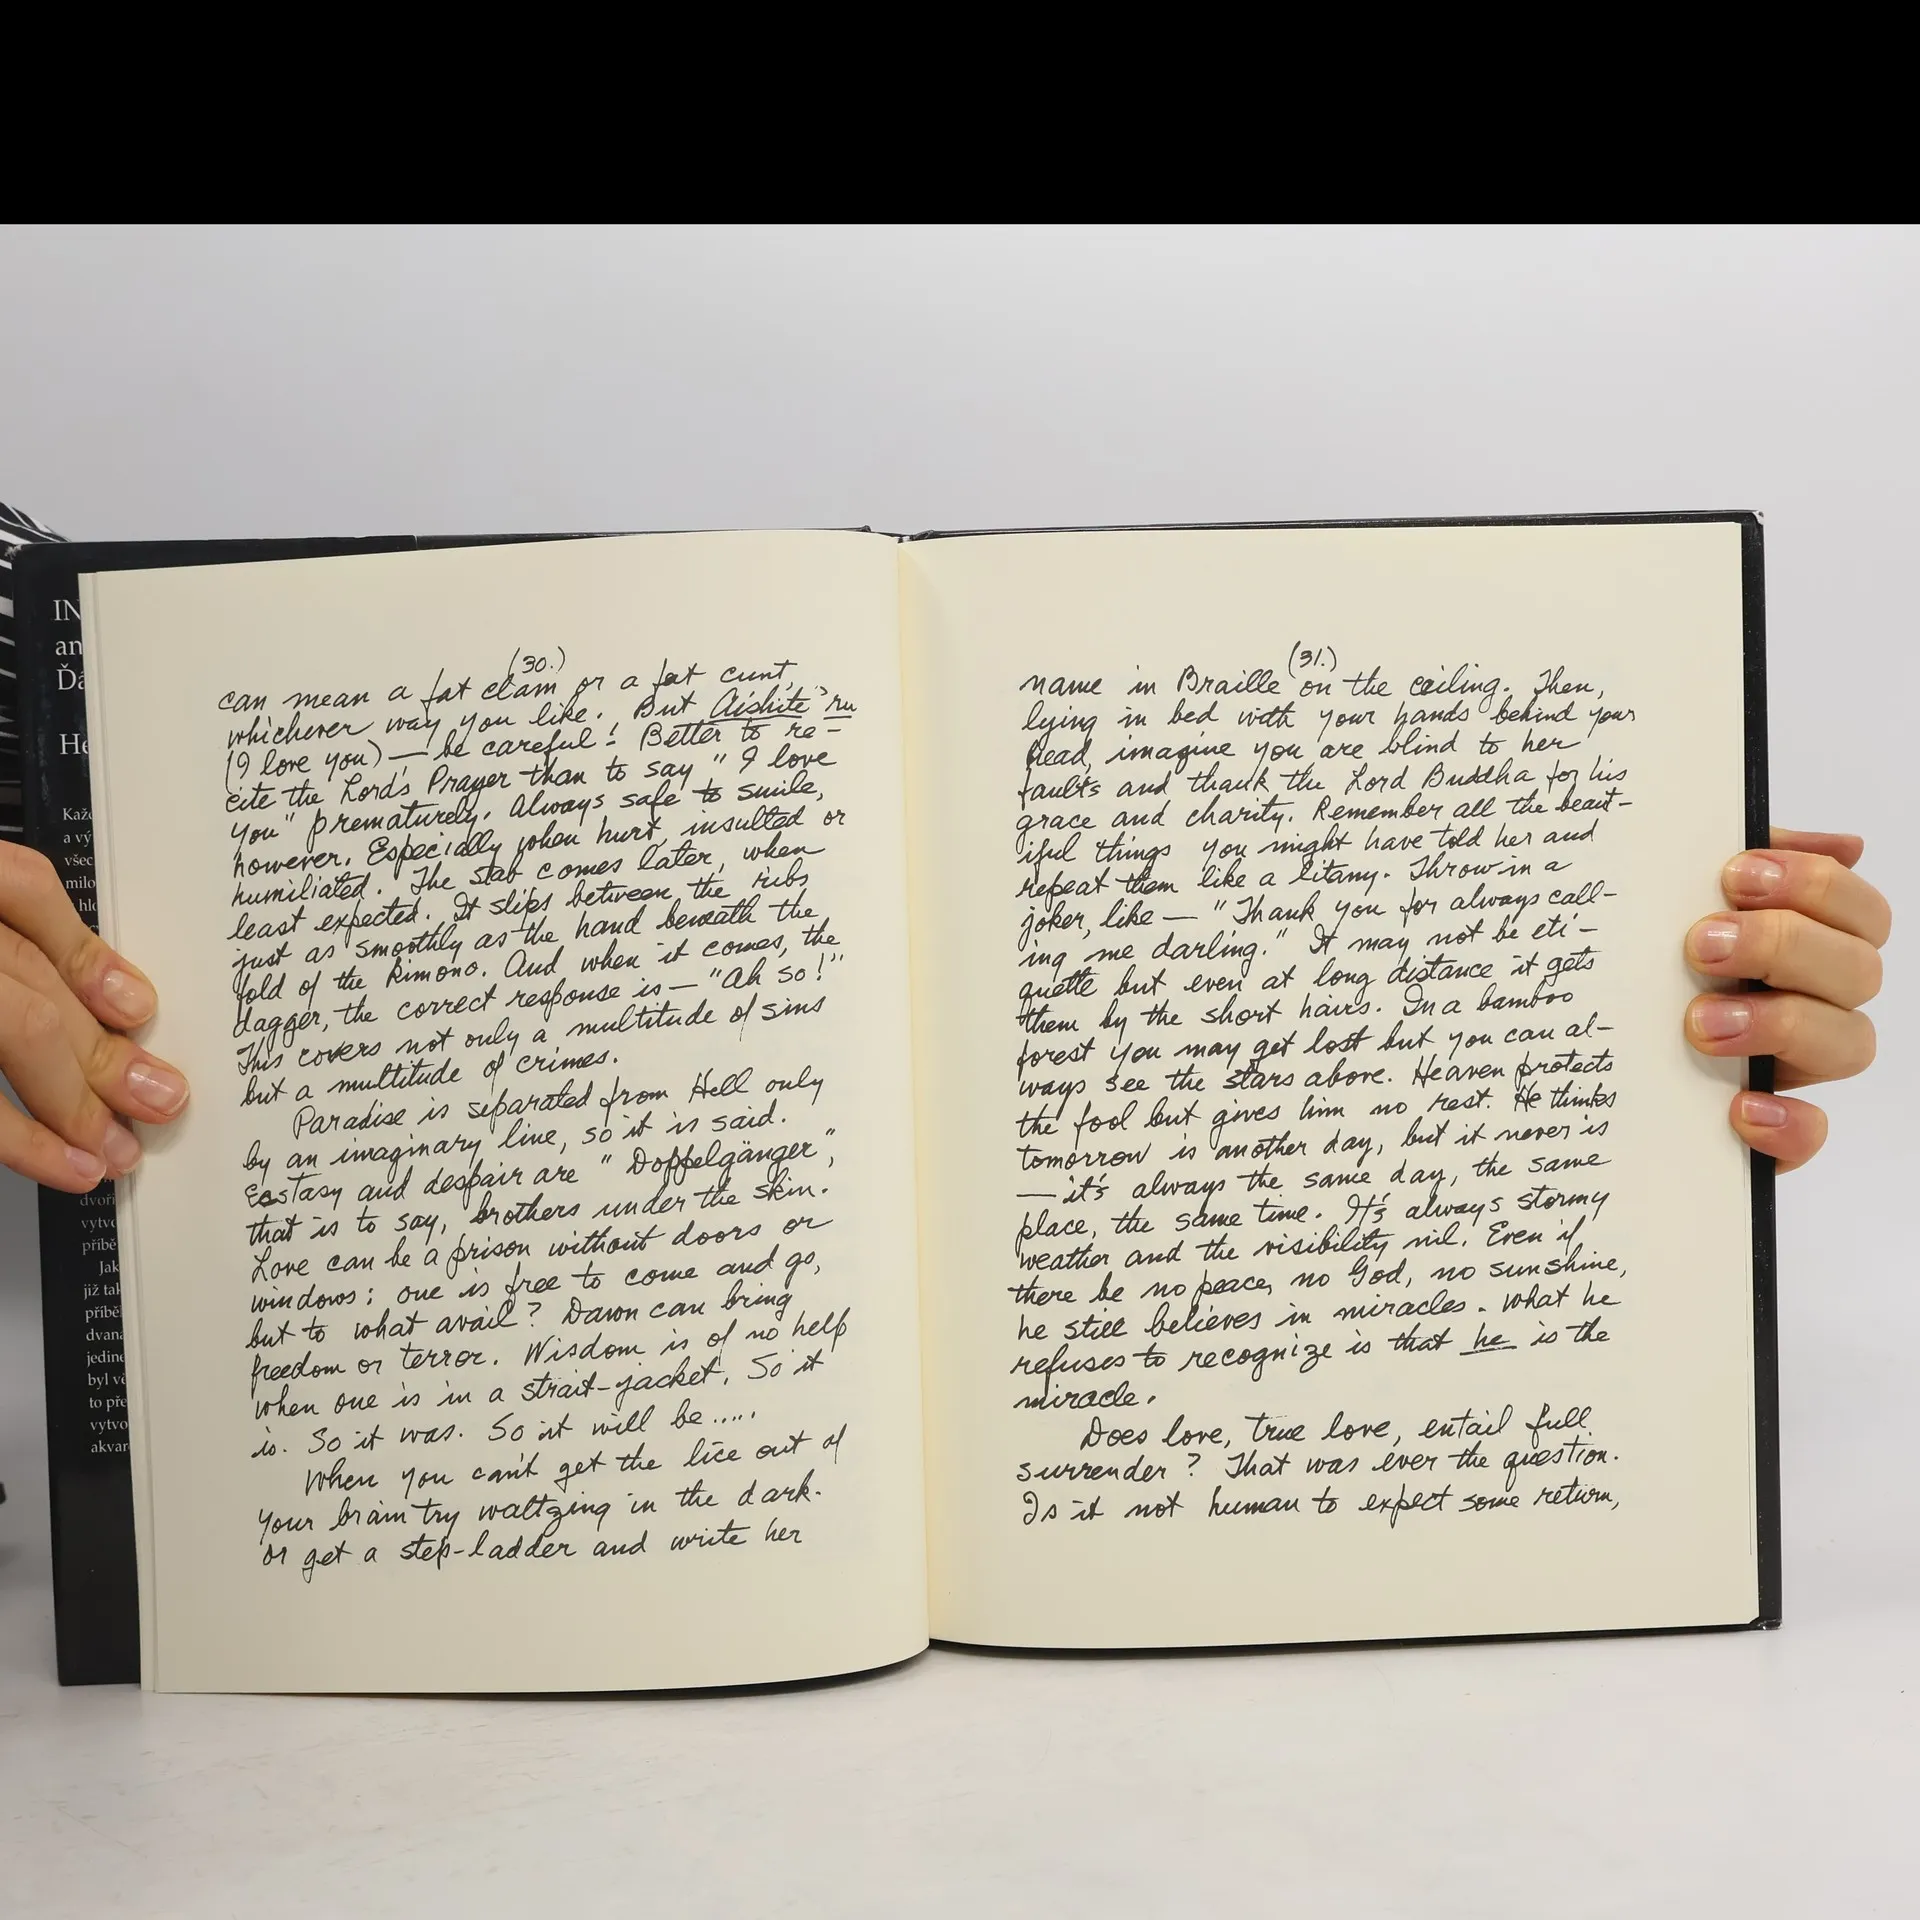 IN
an
Ďá
He
Kaž
a vý
všec
milo
hlo
dvoři
vytvo
příbě
Jak
již tak
příběl
dvana
jedine
byl vě
to pře
vytvo
akvar
(30.)
can mean a fat clam or a fat cunt,
whichever way you like. But Aishite 'ru
(I love you) — be careful! Better to re-
cite the Lord's Prayer than to say "I love
you" prematurely. Always safe to smile,
however. Especially when hurt, insulted or
humiliated. The stab comes later, when
least expected. It slips between the ribs
just as smoothly as the hand beneath the
fold of the kimono. And when it comes, the
dagger, the correct response is — "Ah so!"
This covers not only a multitude of sins
but a multitude of crimes.
Paradise is separated from Hell only
by an imaginary line, so it is said.
Ecstasy and despair are "Doppelgänger",
that is to say, brothers under the skin.
Love can be a prison without doors or
windows; one is free to come and go,
but to what avail? Dawn can bring
freedom or terror. Wisdom is of no help
when one is in a strait-jacket. So it
is. So it was. So it will be.....
When you can't get the lice out of
your brain try waltzing in the dark.
Or get a step-ladder and write her
(31.)
name in Braille on the ceiling. Then,
lying in bed with your hands behind your
head, imagine you are blind to her
faults and thank the Lord Buddha for his
grace and charity. Remember all the beaut-
iful things you might have told her and
repeat them like a litany. Throw in a
joker, like — "Thank you for always call-
ing me darling." It may not be eti-
quette but even at long distance it gets
them by the short hairs. In a bamboo
forest you may get lost but you can al-
ways see the stars above. Heaven protects
the fool but gives him no rest. He thinks
tomorrow is another day, but it never is
— it's always the same day, the same
place, the same time. It's always stormy
weather and the visibility nil. Even if
there be no peace, no God, no sunshine,
he still believes in miracles. What he
refuses to recognize is that he is the
miracle.
Does love, true love, entail full
surrender? That was ever the question.
Is it not human to expect some return,